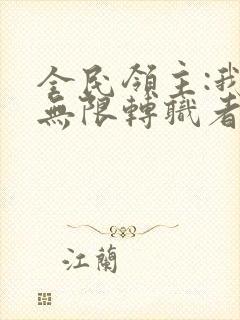 全民領主:我
無限轉職者
江蘭